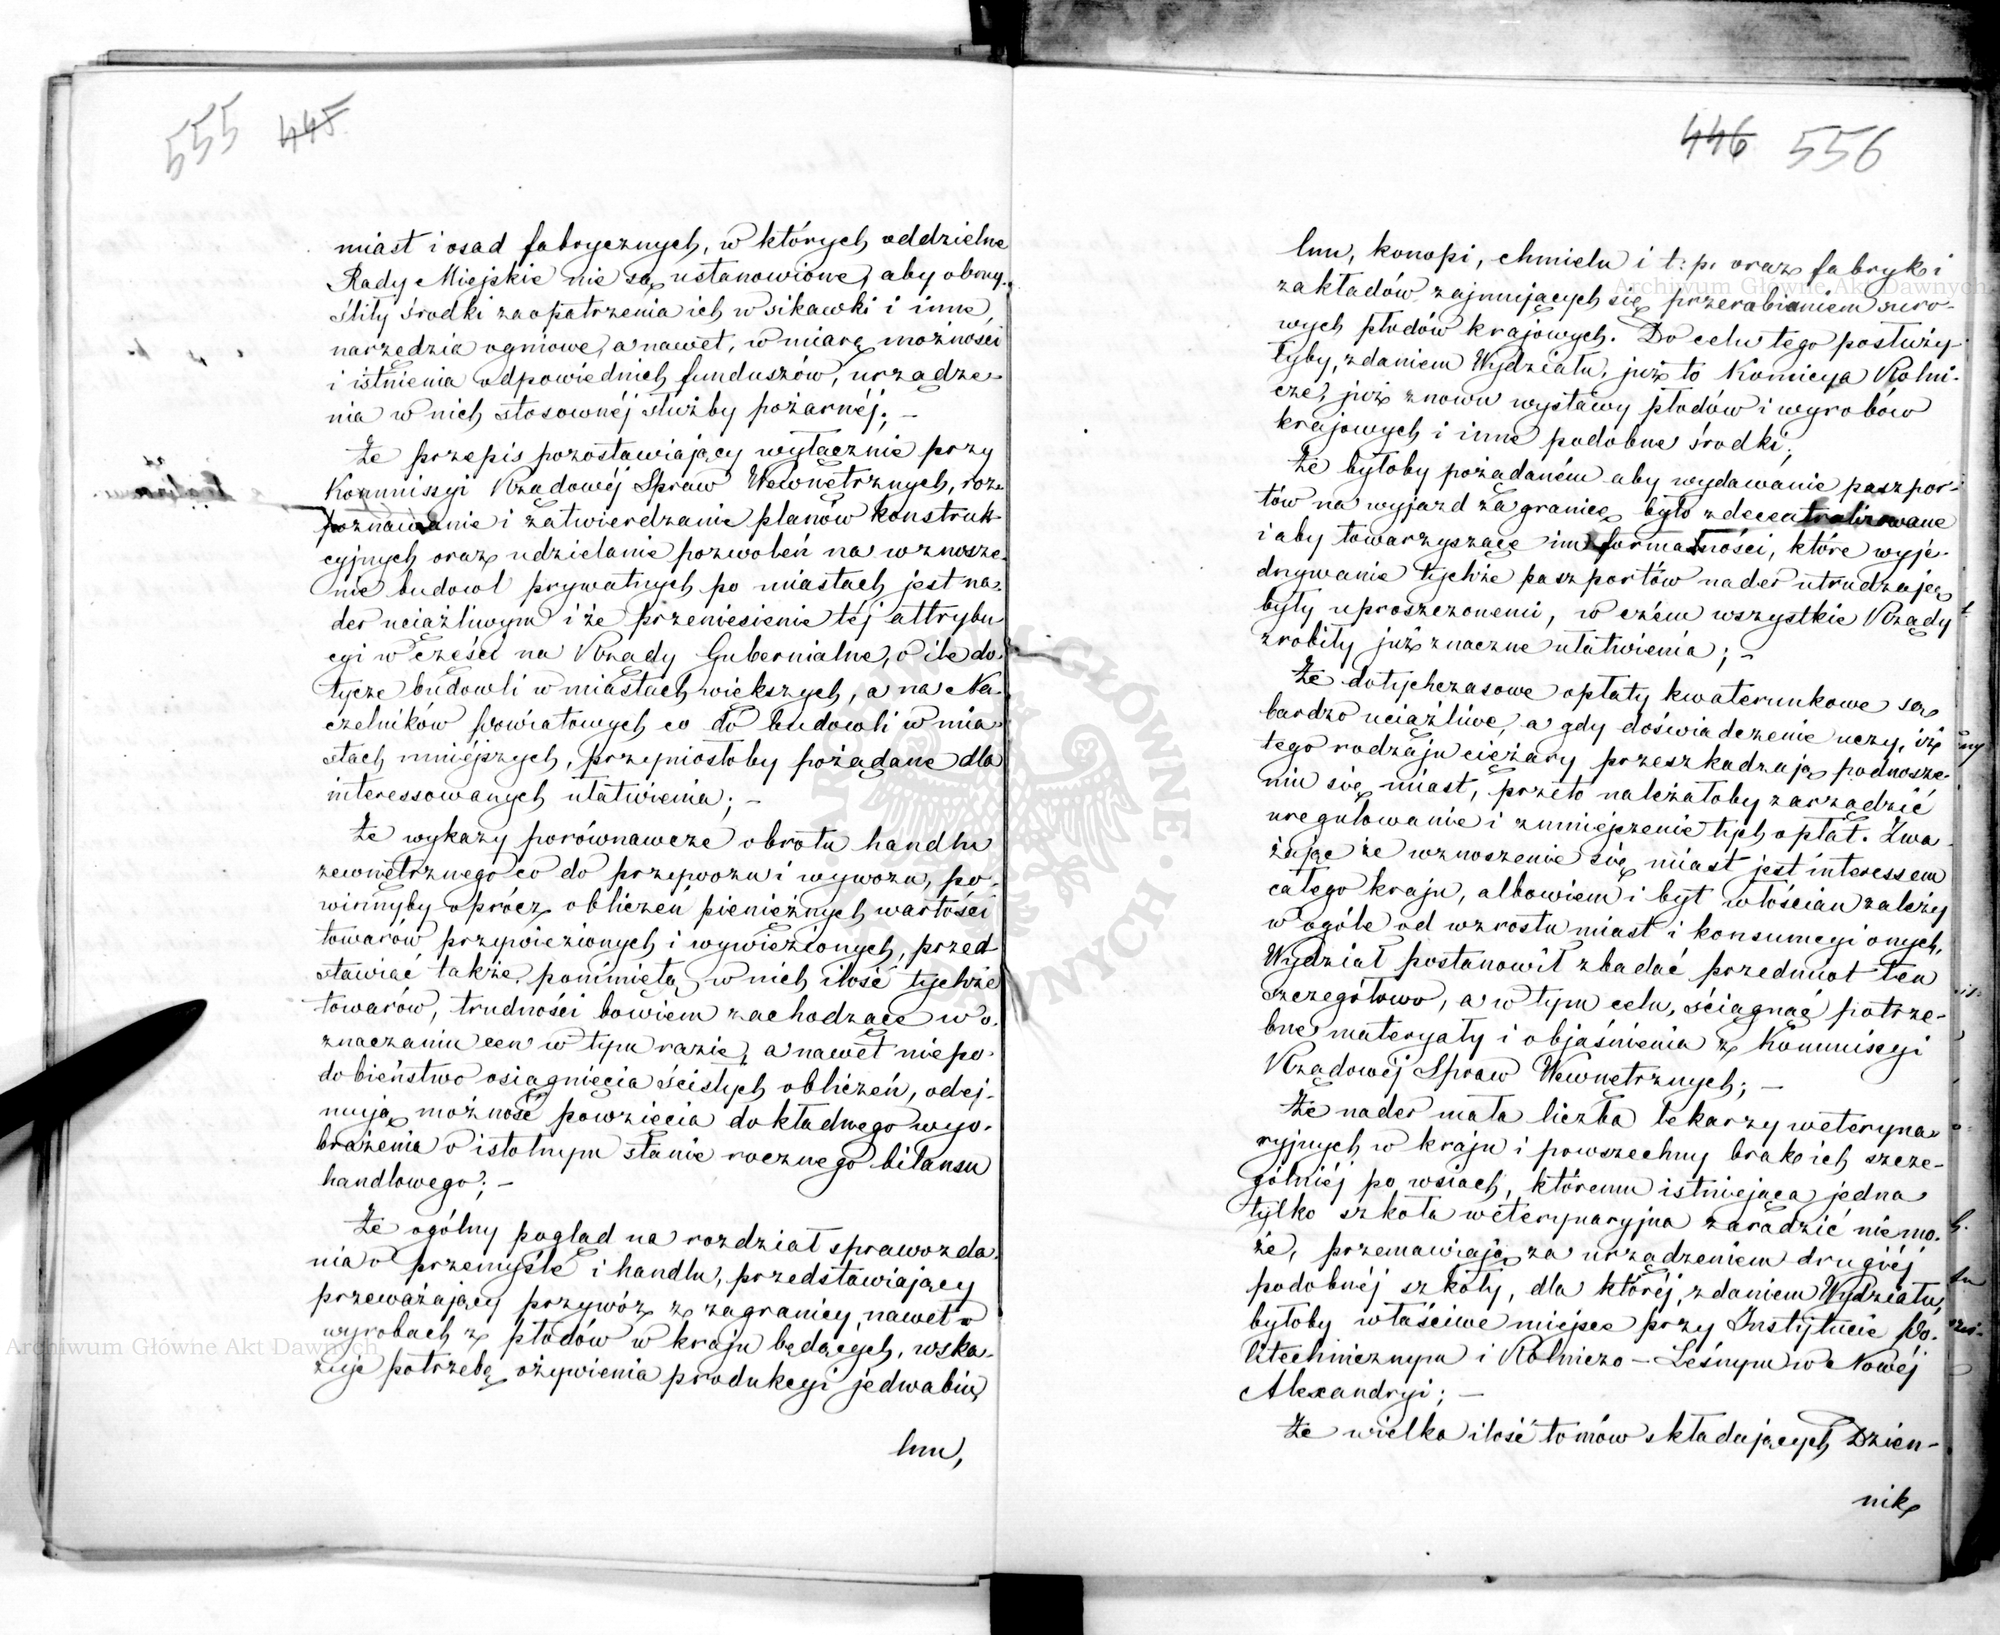 555 445
miast i osad fabrycznych, w których oddzielne
Rady Miejskie nie są ustanowione, aby obmy-
śliły środki zaopatrzenia ich w sikawki i inne
narzędzia ogniowe, a nawet, w miarę możności
i istnienia odpowiednich funduszów, urządze-
nia w nich stosownéj służby pożarnéj; –
Że przepis pozostawiający wyłącznie przy
Kommissyi Rządowéj Spraw Wewnętrznych, roz-
poznawanie i zatwierdzanie planów konstruk-
cyjnych oraz udzielanie pozwoleń na wznosze-
nie budowl prywatnych po miastach jest na-
der uciążliwym i że przeniesienie téj attrybu
cyi w części na Rządy Gubernialne, o ile do-
tycze budowli w miastach większych, a na Na-
czelników powiatowych co do budowli w mia-
stach mniéjszych, przyniosłoby pożądane dla
interessowanych ułatwienia; –
Że wykazy porównawcze obrotu handlu
zewnętrznego co do przywozu i wywozu, po-
winnyby oprócz obliczeń pieniężnych wartości
towarów przywiezionych i wywiezionych, przed
stawiać także pominiętą w nich ilość tychże
towarów, trudności bowiem zachodzące w o-
znaczaniu cen w tym razie, a nawet niepo-
dobieństwo osiągnięcia ścisłych obliczeń, odej-
mują możność powzięcia dokładnego wyo-
brażenia o istotnym stanie rocznego bilansu
handlowego; –
Że ogólny pogląd na rozdział sprawozda-
nia o przemyśle i handlu, przedstawiający
przeważający przywóz z zagranicy, nawet w
wyrobach z płodów w kraju będących, wska-
zuje potrzebę ożywienia produkcyi jedwabiu,
lnu,
446 556
lnu, konopi, chmielu i t: p: oraz fabryk i
zakładów zajmujących się przerabianiem suro-
wych płodów krajowych. Do celu tego posłuży-
łyby, zdaniem Wydziału, już to Komicya Rolni-
cze, już znowu wystawy płodów i wyrobów
krajowych i inne podobne środki;
Że byłoby pożądaném aby wydawanie paszpor-
tów na wyjazd zagranicę było zdecentralizowane
i aby towarzyszące im formalności, które wyje-
dnywanie tychże paszportów nader utrudzają
były uproszczonemi, w czém wszystkie Rządy
zrobiły już znaczne ułatwienia; –
Że dotychczasowe opłaty kwaterunkowe są
bardzo uciążliwe, a gdy doświadczenie uczy, iż
tego rodzaju ciężary przeszkadzają podnosze-
niu się miast, przeto należałoby zarządzić
uregulowanie i zmniejszenie tych opłat. Zwa-
żając że wznoszenie się miast jest interessem
całego kraju, albowiem i byt włościan zależy
w ogóle od wzrostu miast i konsumcyi onych,
Wydział postanowił zbadać przedmiot ten
szczegółowo, a w tym celu, ściągnąć potrze-
bne materyały i objaśnienia z Kommissyi
Rządowéj Spraw Wewnętrznych; –
Że nader mała liczba lekarzy weteryna-
ryjnych w kraju i powszechny brak ich szcze-
gólniéj po wsiach, któremu istniejąca jedna
tylko szkoła weterynaryjna zaradzić nie mo-
że, przemawiają za urządzeniem drugiéj
podobnéj szkoły, dla któréj, zdaniem Wydziału,
byłoby właściwe miejsce przy Instytucie Po-
litechnicznym i Rolniczo – Leśnym w Nowéj
Alexandryi; –
Że wielka ilość tomów składających Dzien-
nik
Archiwum Główne Akt Dawnych